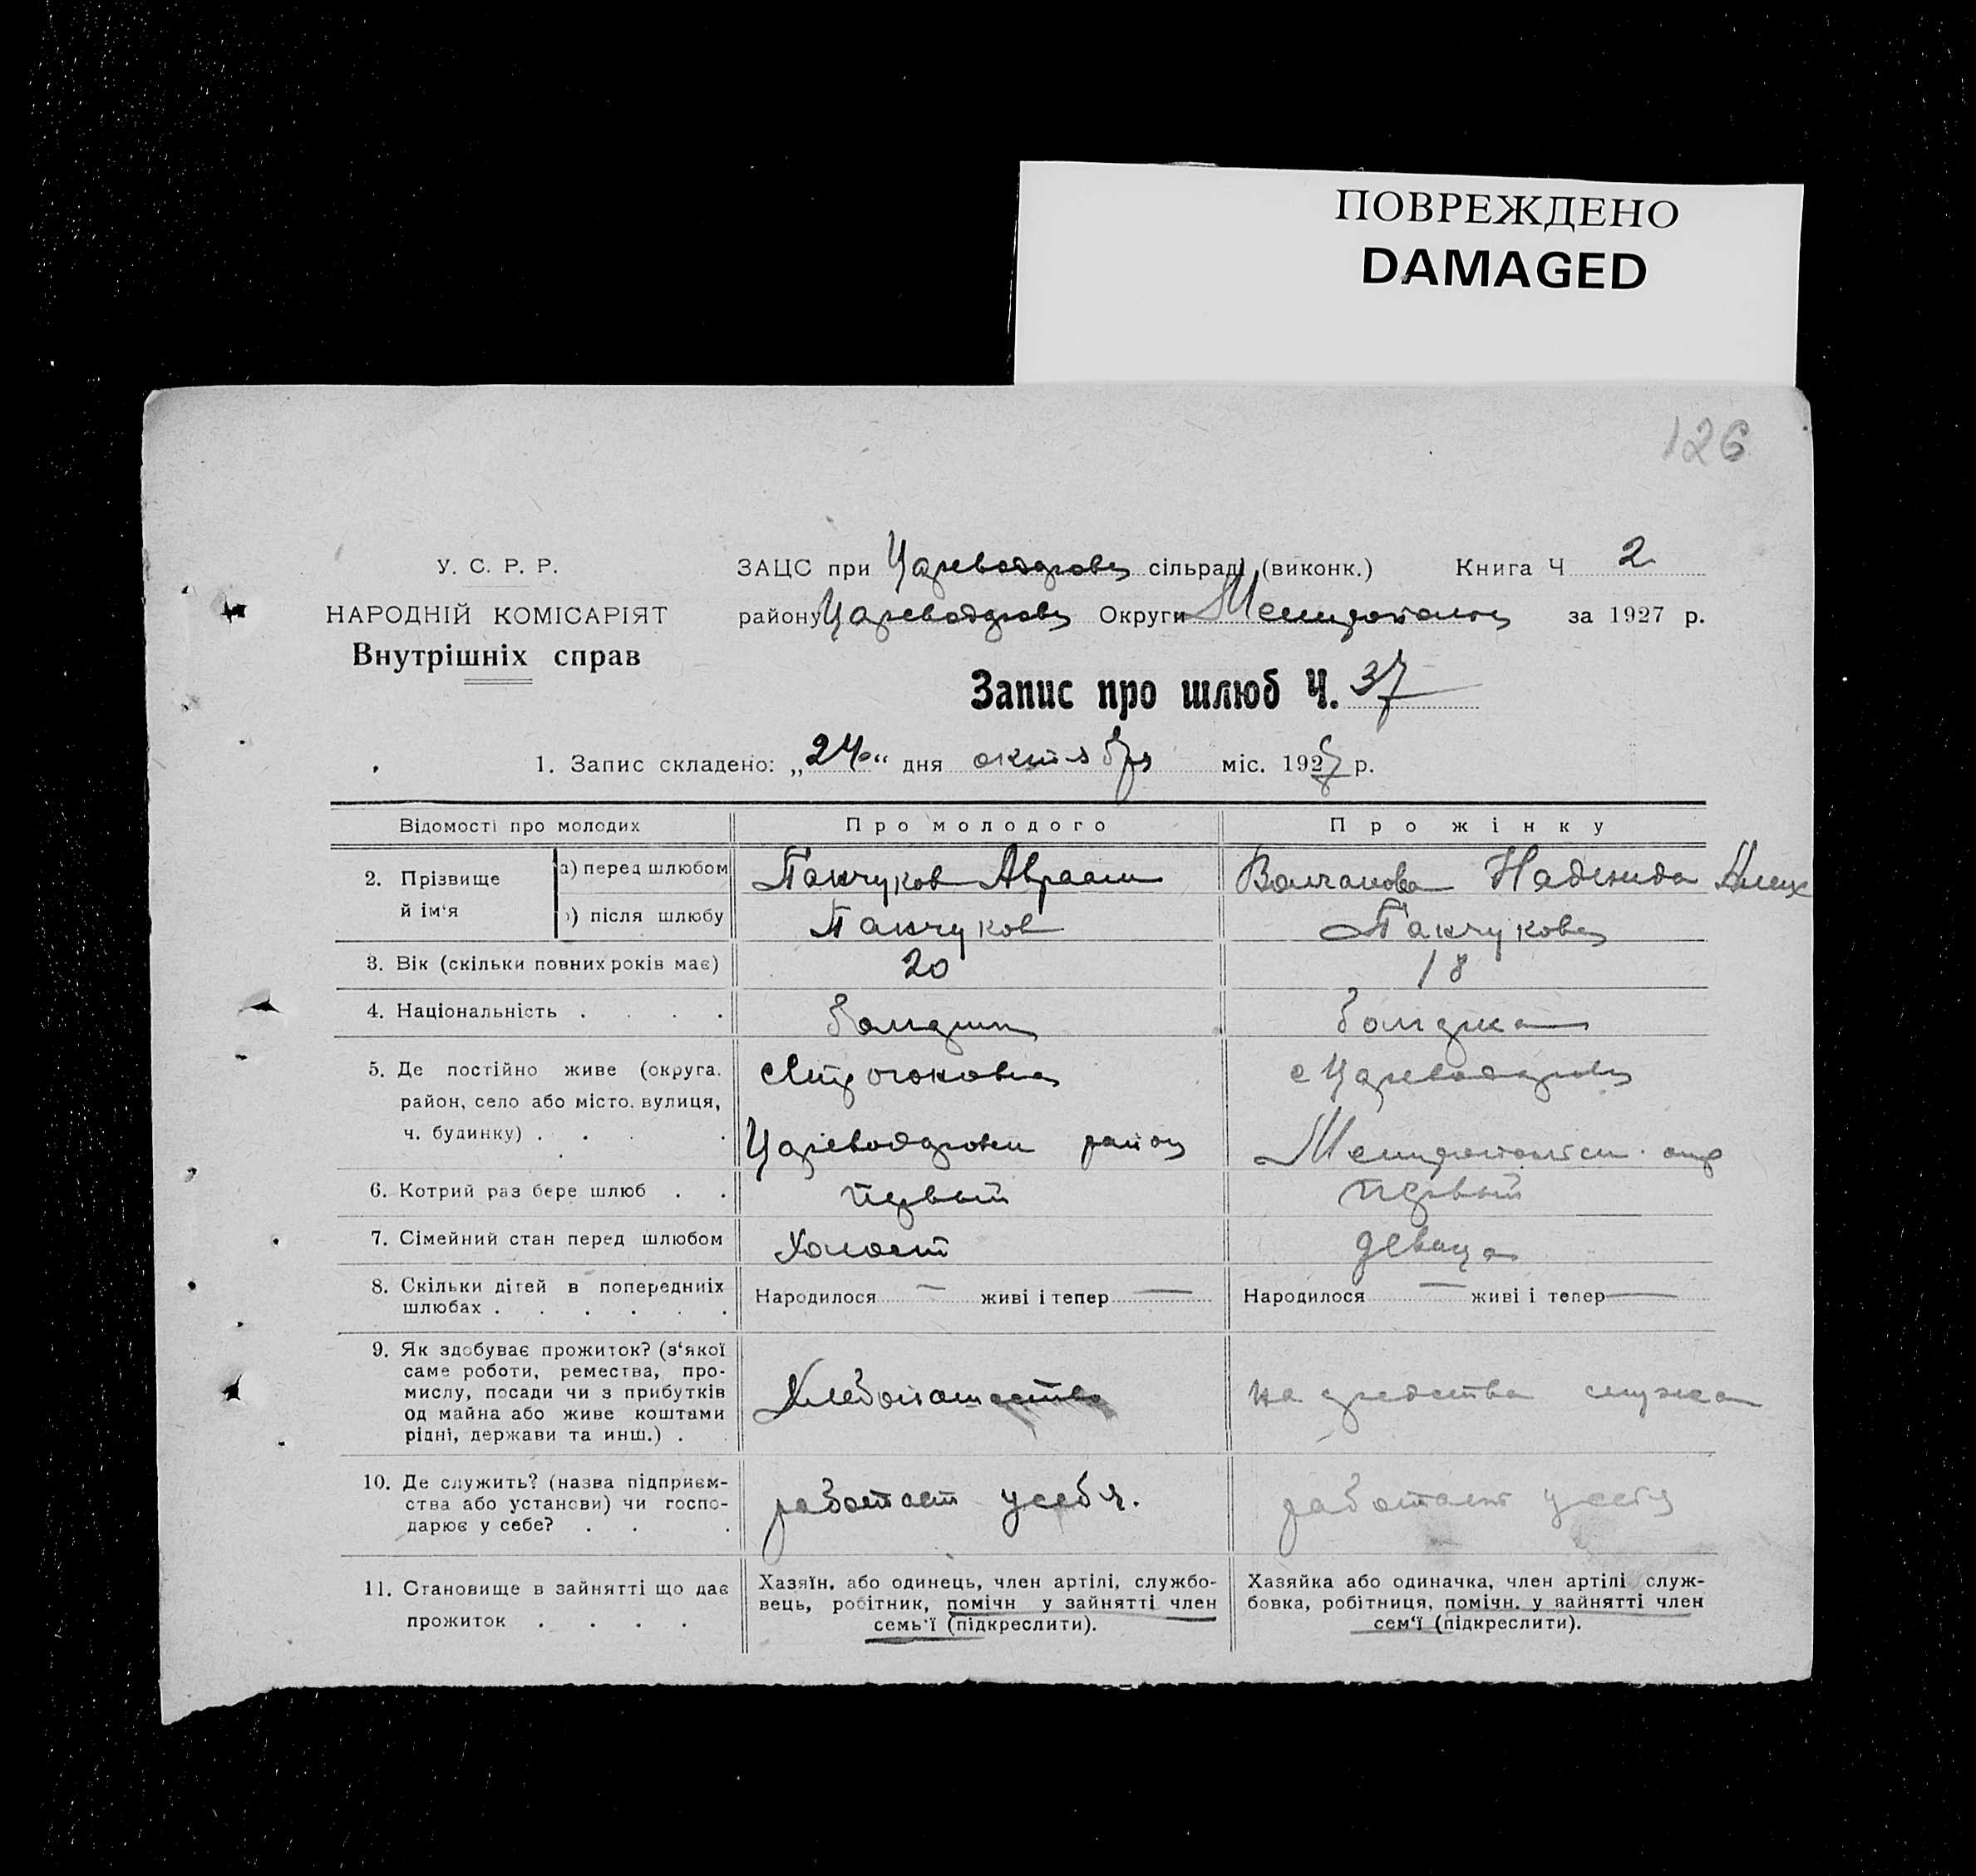 ПОВРЕЖДЕНО
DAMAGED
126
У. С. Р. Р.
НАРОДНІЙ КОМІСАРІЯТ
Внутрішніх справ
ЗАЦС при Цареводаровец сільраді (виконк.) Книга Ч 2
району Цареводаровец Округи за 1927 р.
Запис про шлюб Ч. 37
1. Запис складено: „24го“ дня октября міс. 1927 р.
Відомості про молодих Про молодого Про жінку
2. Прізвище й ім‘я
а) перед шлюбом Панчуков Авраам Волчанова Надежида Алекс
б) після шлюбу Панчуков Панчукова
3. Вік (скільки повних років має) 20 18
4. Національність . . . . болгарин болгарка
5. Де постійно живе (округа, район, село або місто, вулиця, ч. будинку) . . . .
район
с
окр
6. Котрий раз бере шлюб . . первый первый
7. Сімейний стан перед шлюбом Холост девица
8. Скільки дітей в попередниіх шлюбах . . . . . .
Народилося — живі і тепер —
Народилося — живі і тепер —
9. Як здобуває прожиток? (з‘якої саме роботи, ремества, промислу, посади чи з прибутків од майна або живе коштами рідні, держави та инш.) .
Хлебопашество
на средства мужа
10. Де служить? (назва підприємства або установи) чи господарює у себе? . . .
работает у себя.
работает у себя
11. Становище в зайнятті що дає прожиток . . . .
Хазяїн, або одинець, член артілі, службовець, робітник, помічн у зайнятті член семь‘ї (підкреслити).
Хазяйка або одиначка, член артілі службовка, робітниця, помічн. у зайнятті член сем‘ї (підкреслити).